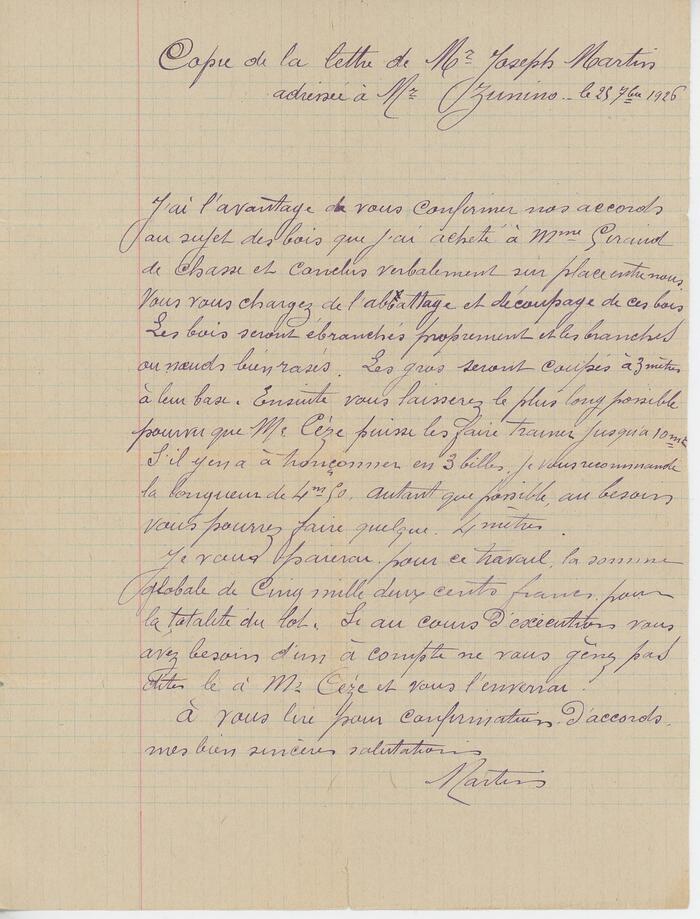 Copie de la lettre de Mr Joseph Martin
adressée à Mr Zunino _ le 25 7bre 1926
J'ai l'avantage de vous confirmer nos accords
au sujet des bois que j'ai acheté à Mme Giraud
de Chasse et conclus verbalement sur place entre nous.
Vous vous chargez de l'abattage et découpage de ces bois
Les bois seront ébranchés proprement et les branches
ou nœuds bien rasés. Les gros seront coupés à 3 mètres
à leur base. Ensuite vous laisserez le plus long possible
pourvu que Mr Cèze puisse les faire trainer jusqu'a 10 m
S'il y en a à tronçonner en 3 billes, je vous recommande
la longueur de 4m50. autant que possible, au besoin
vous pourrez faire quelque 4 mètres.
Je vous paierai pour ce travail, la somme
globale de Cinq mille deux cents francs, pour
la totalité du lot. Si au cours d'exécution vous
avez besoin d'un à compte ne vous gênez pas
dites le à Mr Cèze et vous l'enverrai.
à vous lire pour confirmation d'accords.
mes bien sincères salutations
Martin